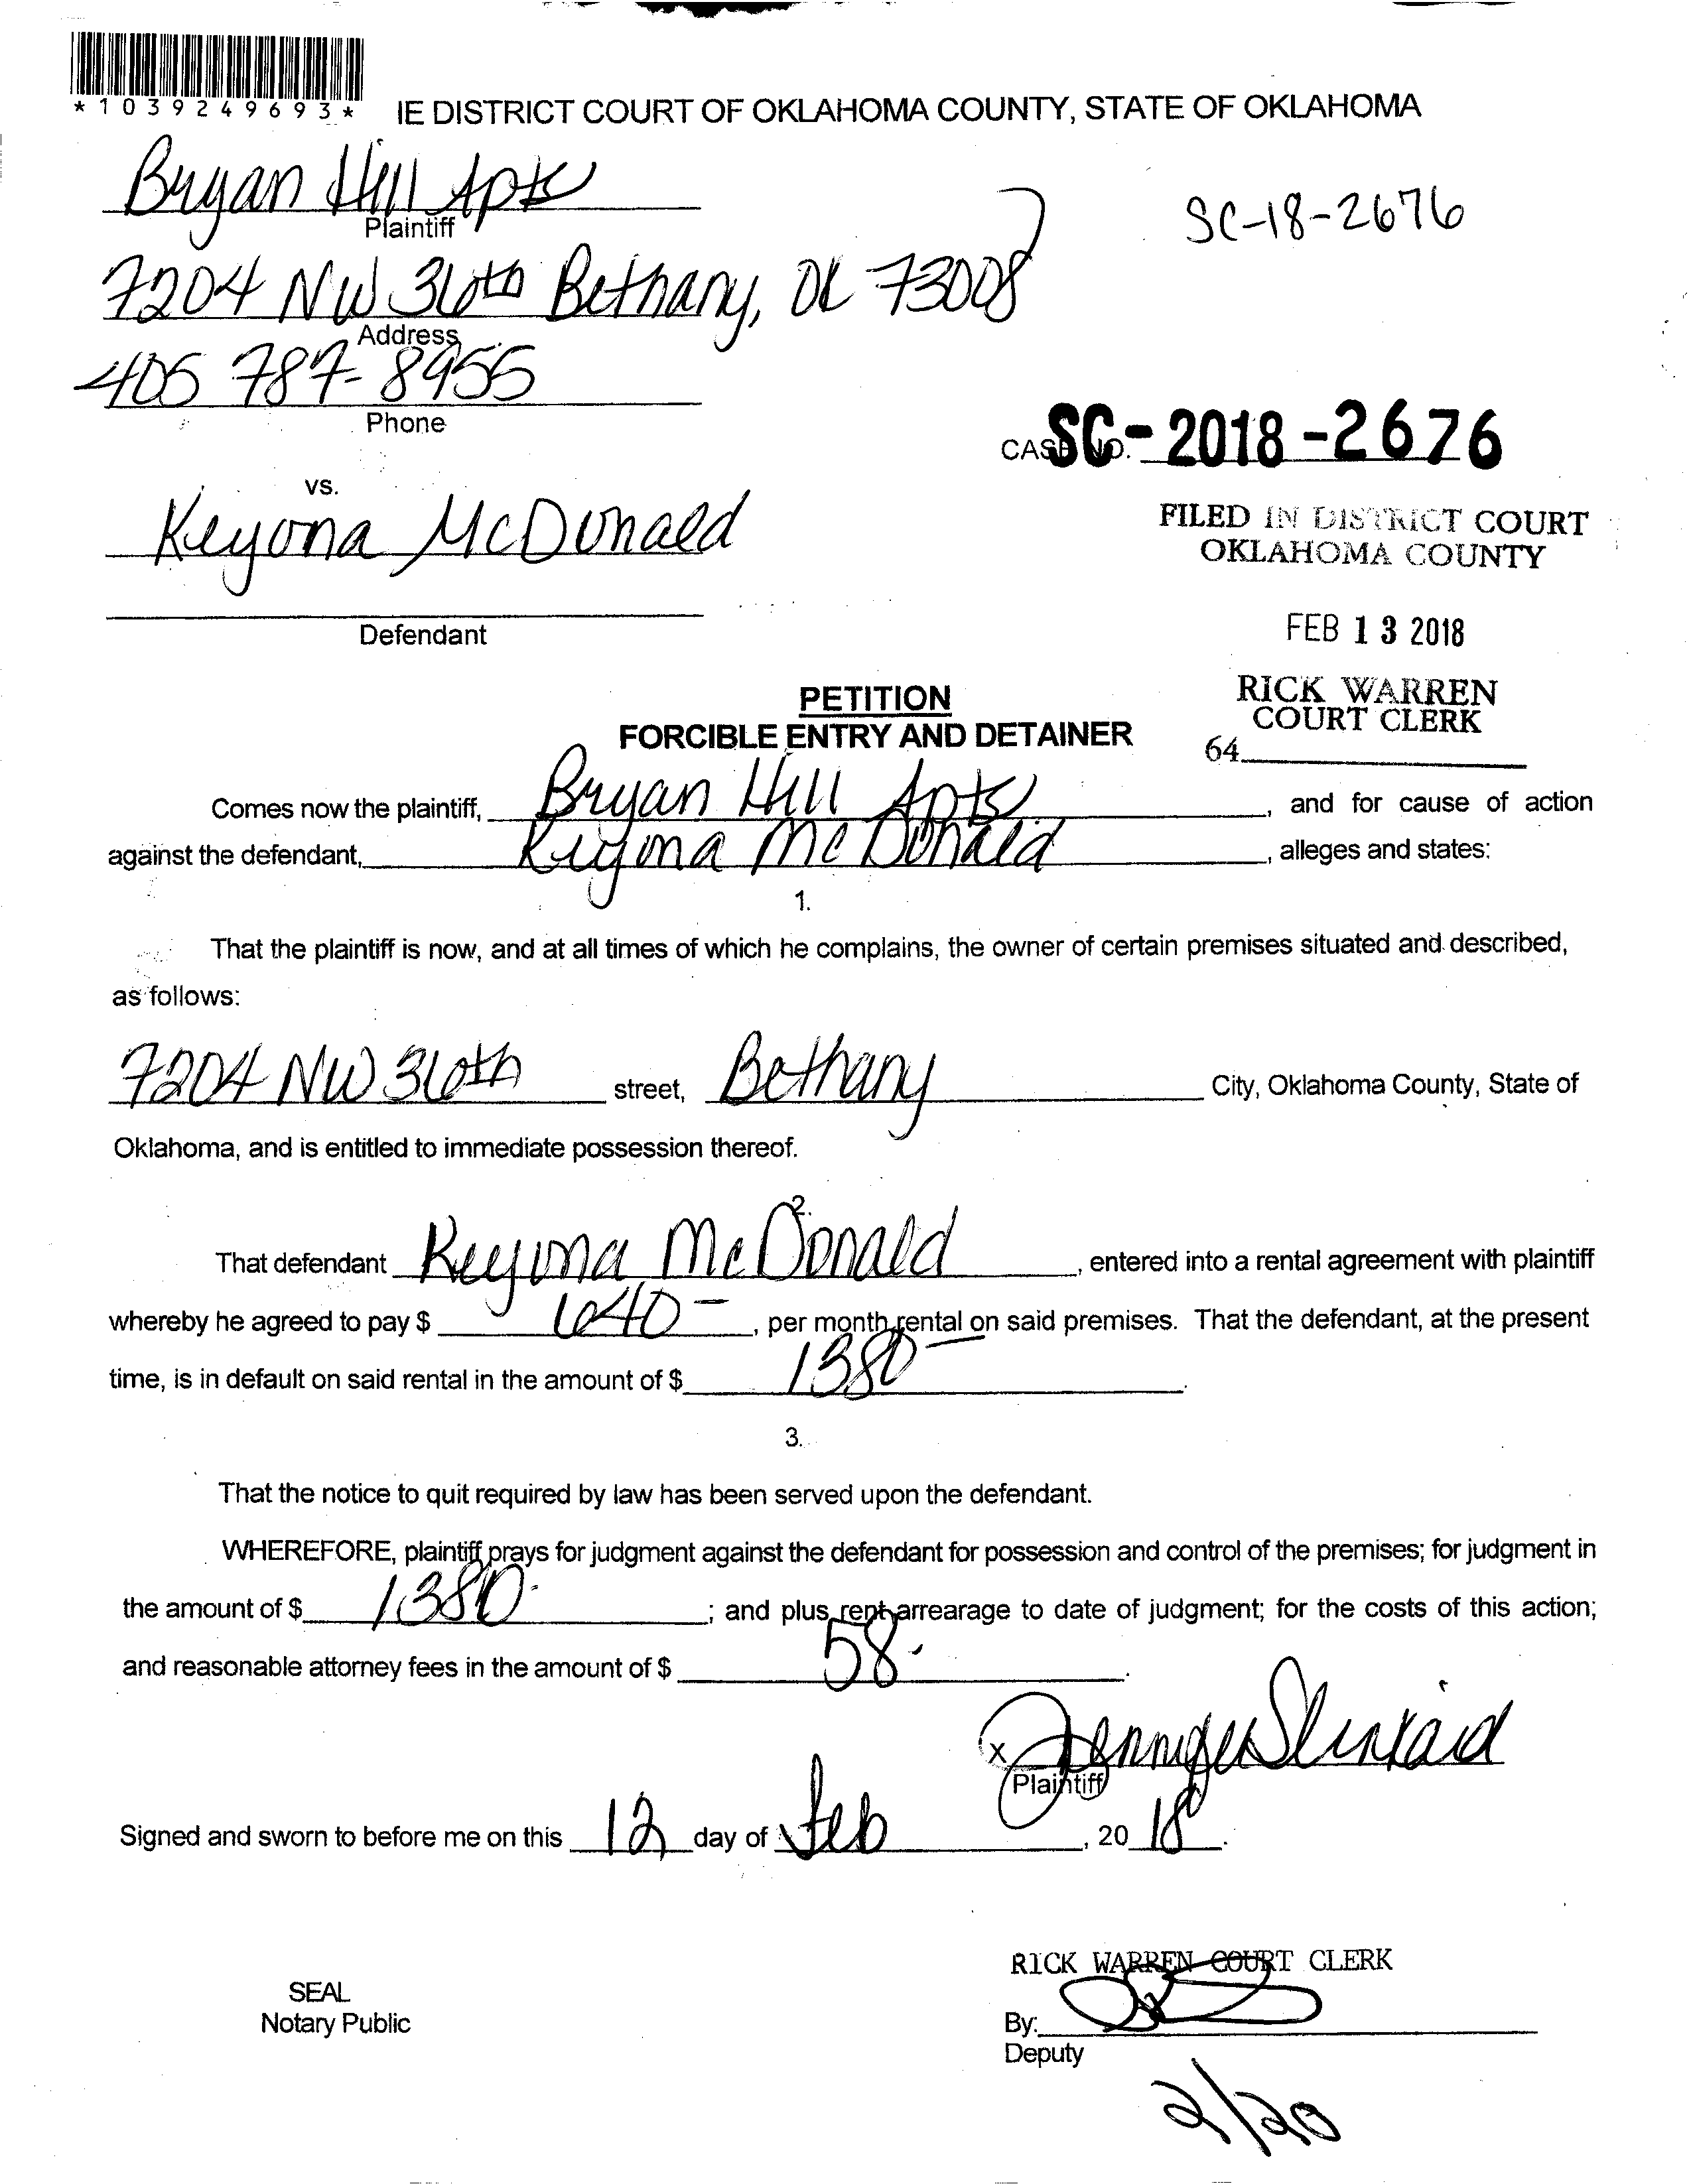 *1039249693*
IE DISTRICT COURT OF OKLAHOMA COUNTY, STATE OF OKLAHOMA
Bryan Hill Apts
Plaintiff
SC-18-2676
7204 NW 36th Bethany, OK 73008
Address
405 787-8955
Phone
CASE NO. SC-2018-2676
vs.
Keyona McDonald
FILED IN DISTRICT COURT
OKLAHOMA COUNTY
Defendant
FEB 13 2018
PETITION
FORCIBLE ENTRY AND DETAINER
RICK WARREN
COURT CLERK
64
Comes now the plaintiff, Bryan Hill Apts, and for cause of action
against the defendant, Keyona McDonald, alleges and states:
1.
That the plaintiff is now, and at all times of which he complains, the owner of certain premises situated and described,
as follows:
7204 NW 36th street, Bethany City, Oklahoma County, State of
Oklahoma, and is entitled to immediate possession thereof.
2.
That defendant Keyona McDonald, entered into a rental agreement with plaintiff
whereby he agreed to pay $ 640-, per month rental on said premises. That the defendant, at the present
time, is in default on said rental in the amount of $ 1380-.
3.
That the notice to quit required by law has been served upon the defendant.
WHEREFORE, plaintiff prays for judgment against the defendant for possession and control of the premises; for judgment in
the amount of $ 1380-; and plus rent arrearage to date of judgment; for the costs of this action;
and reasonable attorney fees in the amount of $ 58-.
x Jennifer Slinkard
Plaintiff
Signed and sworn to before me on this 12 day of Feb, 2018.
RICK WARREN COURT CLERK
SEAL
Notary Public
By:
Deputy
2/20